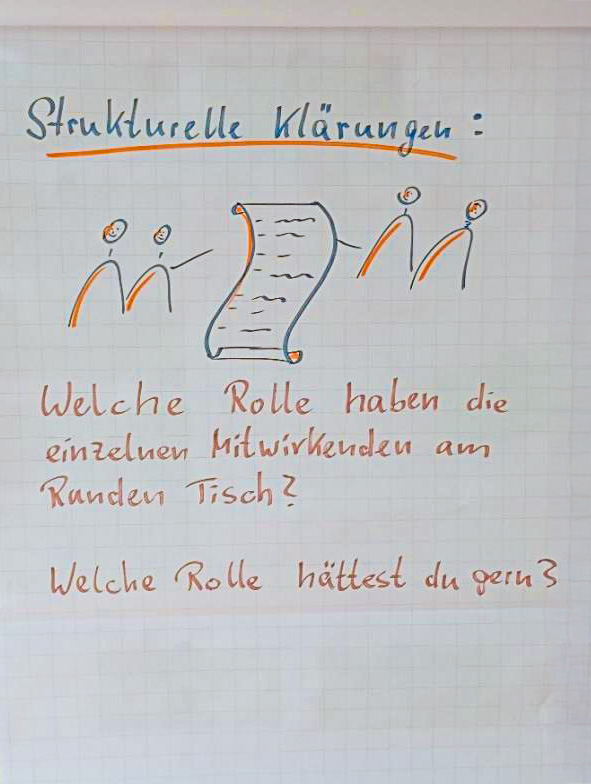 Strukturelle Klärungen:
Welche Rolle haben die
einzelnen Mitwirkenden am
Runden Tisch?
Welche Rolle hättest du gern?